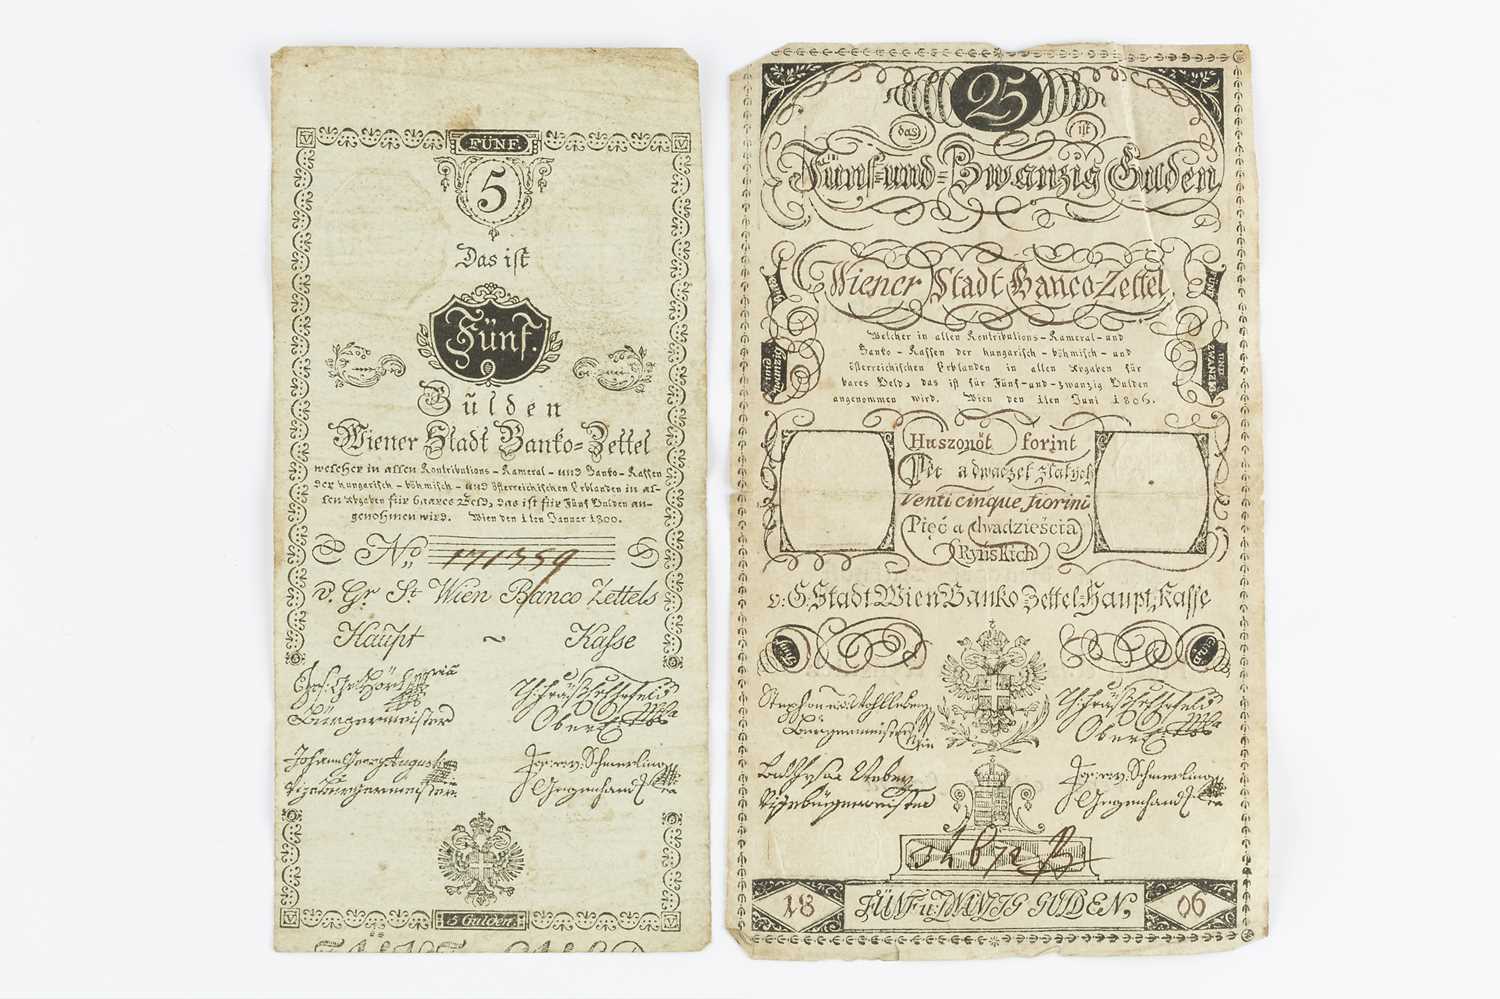 V
FÜNF.
V
5
Das ist
Fünf.
Gulden
Wiener Stadt Banko-Zettel
welcher in allen Kontributions-Kameral-und Banko-Kassen
der hungarisch-böhmisch-und österreichischen Erblanden in al-
len Abgaben für baares Geld, das ist für Fünf Gulden an-
genohmen wird. Wien den 1ten Januar 1800.
No. 171359
v. Gr St Wien Banco Zettels
Haupt ~ Kasse
Bürgermeister
Johann Georg Augusti
Vizebürgermeister
Jos: v: Schmerling
Gegenhand
V
5 Gulden.
V
25
das ist
Fünf-und-Zwanzig Gulden
Wiener Stadt Banco-Zettel
FÜNF
UND
ZWANZIG
Welcher in allen Kontributions-Kameral-und
Banko-Kassen der hungarisch-böhmisch-und
österreichischen Erblanden in allen Abgaben für
bares Geld, das ist für Fünf-und-zwanzig Gulden
angenommen wird. Wien den 1ten Juni 1806.
Huszonöt forint
Pět a dwaczet zlatych
Venti cinque fiorini
Pięć a dwadzieścia
Ryńskich
v: G: Stadt Wien Banko Zettel-Haupt Kasse
Stephan Edler v Wohlleben
Bürgermeister
Vizebürgermeister
Jos: v: Schmerling
Gegenhand
18
FÜNF u: ZWANZIG GULDEN,
06